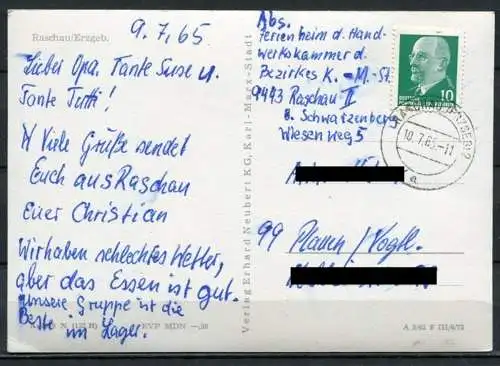 Raschau/Erzgeb.
9.7.65
Lieber Opa, Tante Suse u.
Tante Tutti!
Viele Grüße sendet
Euch aus Raschau
Euer Christian
Wir haben schlechtes Wetter,
aber das Essen ist gut.
Unsere Gruppe ist die
Beste im Lager.
EVP MDN —,20
Verlag Erhard Neubert KG, Karl-Marx-Stadt
Abs.
Ferienheim d. Hand-
werkskammer d.
Bezirkes K.-M.-St.
9443 Raschau II
ü. Schwarzenberg
Wiesenweg 5
DEUTSCHE
10
10.7.65-11
a
99 Plauen/Vogtl.